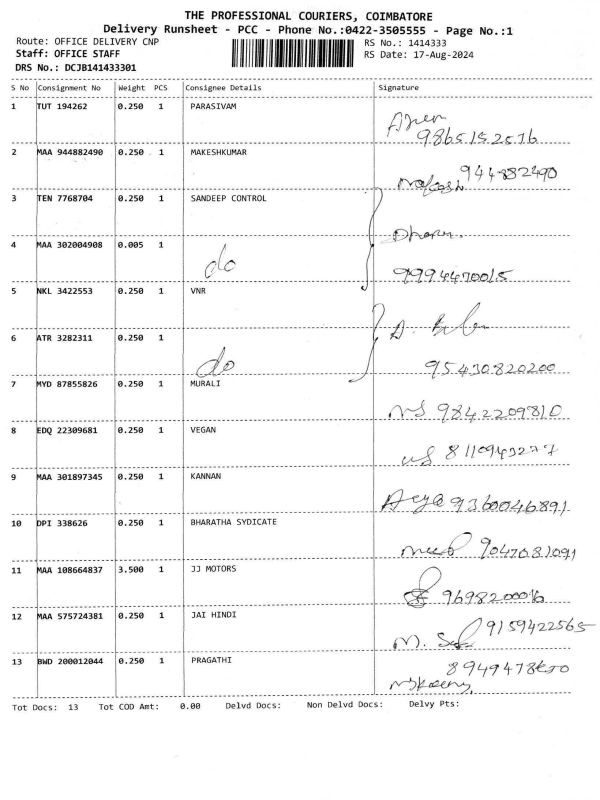 THE PROFESSIONAL COURIERS, COIMBATORE
Delivery Runsheet - PCC - Phone No.:0422-3505555 - Page No.:1
Route: OFFICE DELIVERY CNP RS No.: 1414333
Staff: OFFICE STAFF RS Date: 17-Aug-2024
DRS No.: DCJB141433301
S No Consignment No Weight PCS Consignee Details Signature
1 TUT 194262 0.250 1 PARASIVAM
9865152576
2 MAA 944882490 0.250 1 MAKESHKUMAR
944882490
3 TEN 7768704 0.250 1 SANDEEP CONTROL
4 MAA 302004908 0.005 1
do 9994470015
5 NKL 3422553 0.250 1 VNR
6 ATR 3282311 0.250 1
do 95430820200
7 MYD 87855826 0.250 1 MURALI
9842209810
8 EDQ 22309681 0.250 1 VEGAN
9 MAA 301897345 0.250 1 KANNAN
9360046891
10 DPI 338626 0.250 1 BHARATHA SYDICATE
11 MAA 108664837 3.500 1 JJ MOTORS
12 MAA 575724381 0.250 1 JAI HINDI
9159422565
13 BWD 200012044 0.250 1 PRAGATHI
Tot Docs: 13 Tot COD Amt: 0.00 Delvd Docs: Non Delvd Docs: Delvy Pts: